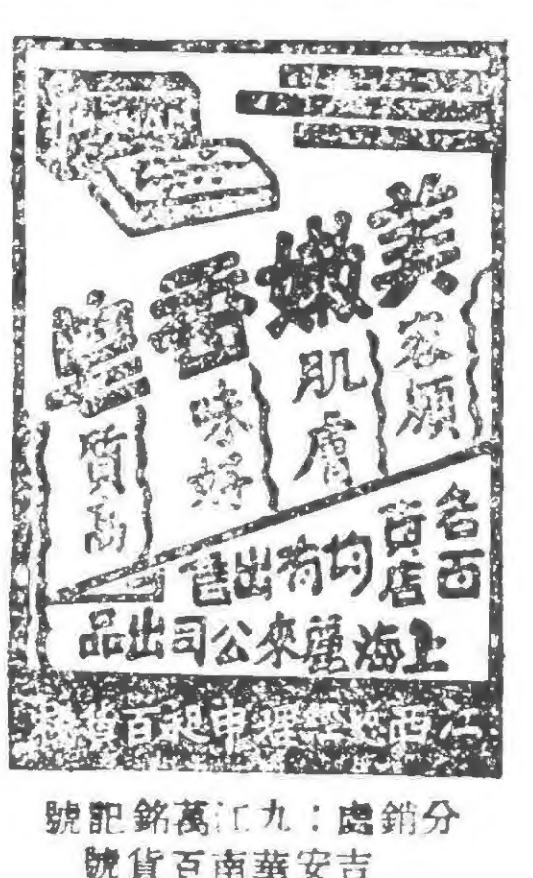 美容顏
嫩肌膚
香味好
皂質高
各百貨店
均有出售
上海麗來公司出品
江西總經理申昶百貨號
分銷處：九江萬銘記號
吉安華南百貨號